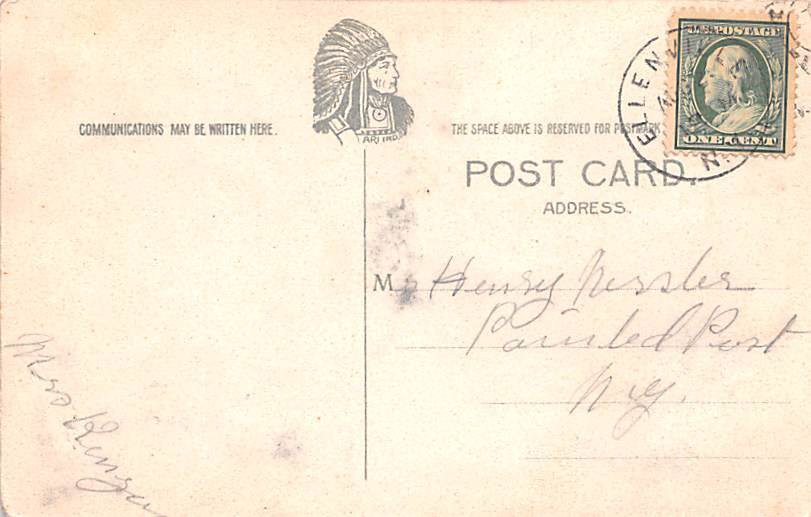 COMMUNICATIONS MAY BE WRITTEN HERE.
THE SPACE ABOVE IS RESERVED FOR POSTMARK
U.S. POSTAGE
ONE CENT
ELLENVI
N.
POST CARD.
ADDRESS.
Mr Henry Nessler
Painted Post
N.y.
Mrs